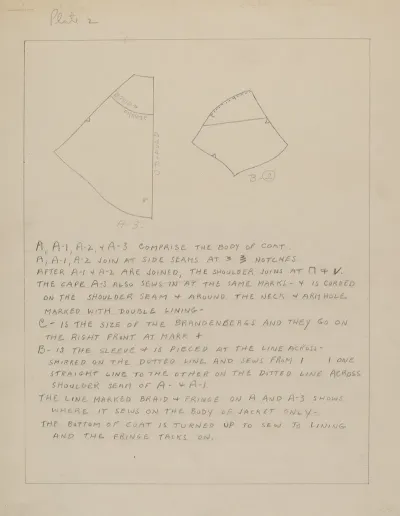 Plate 2
BRAID &
FRINGE
ON FOLD
A-3
B-②
A, A-1, A-2, & A-3 COMPRISE THE BODY OF COAT.
A, A-1, A-2 JOIN AT SIDE SEAMS AT NOTCHES
AFTER A-1 & A-2 ARE JOINED, THE SHOULDER JOINS AT ⊓ & V.
THE CAPE A-3 ALSO SEWS IN AT THE SAME MARKS- & IS CORDED
ON THE SHOULDER SEAM & AROUND THE NECK & ARMHOLE
MARKED WITH DOUBLE LINING-
C- IS THE SIZE OF THE BRANDENBERGS AND THEY GO ON
THE RIGHT FRONT AT MARK +
B- IS THE SLEEVE & IS PIECED AT THE LINE ACROSS-
SHIRRED ON THE DOTTED LINE AND SEWS FROM | | ONE
STRAIGHT LINE TO THE OTHER ON THE DOTTED LINE ACROSS
SHOULDER SEAM OF A- & A-1
THE LINE MARKED BRAID & FRINGE ON A AND A-3 SHOWS
WHERE IT SEWS ON THE BODY OF JACKET ONLY-
THE BOTTOM OF COAT IS TURNED UP TO SEW TO LINING
AND THE FRINGE TACKS ON.